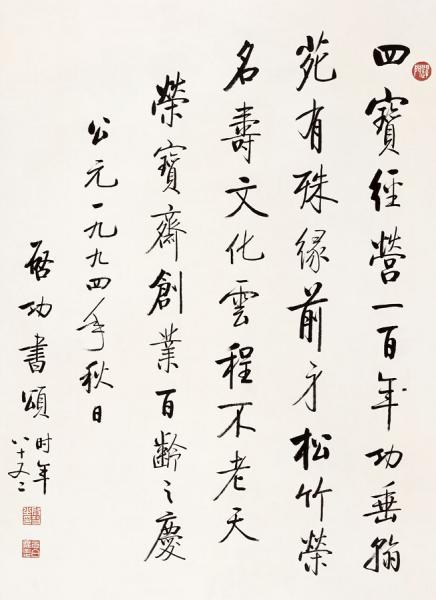 四寶經營一百年功垂翰
苑有殊緣前身松竹榮
名壽文化雲程不老天
榮寶齋創業百齡之慶
公元一九九四年秋日
啓功書頌
时年
八十又二